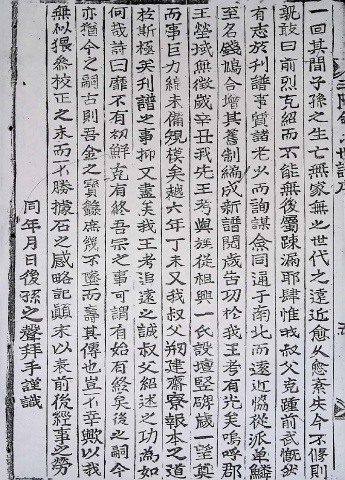 一回其間子孫之生亡無家無之世代之遠近愈久愈紊失今不修則
孰敢曰前烈克紹而不能無後屬踈漏耶肆惟我叔父克踵前武慨然
有志於刊譜事質諸老少而詢謀僉同通于南北而遐近恊從派單鱗
至名錢鳩合增其舊制編成新譜閱歲告功於我王考有光矣嗚呼郡
王塋域無徵歲辛丑我先王考與族從祖興一氏設壇竪碑歲一奠
而事巨力綿未備規模矣越六年丁未又我叔父刱建齋寮報本之道
於斯極矣刊譜之事抑又盡美我王考追遠之誠叔父紹述之功為如
何哉詩曰靡不有初鮮克有終吾宗之事可謂有始有終矣後之嗣今
亦猶今之嗣古則吾金之寶籙庶幾不墜而壽其傳也豈不幸歟以我
無似猥參校正之末而不勝據石之感略記顛末以表前後經事之勞
同年月日後孫之聲拜手謹識